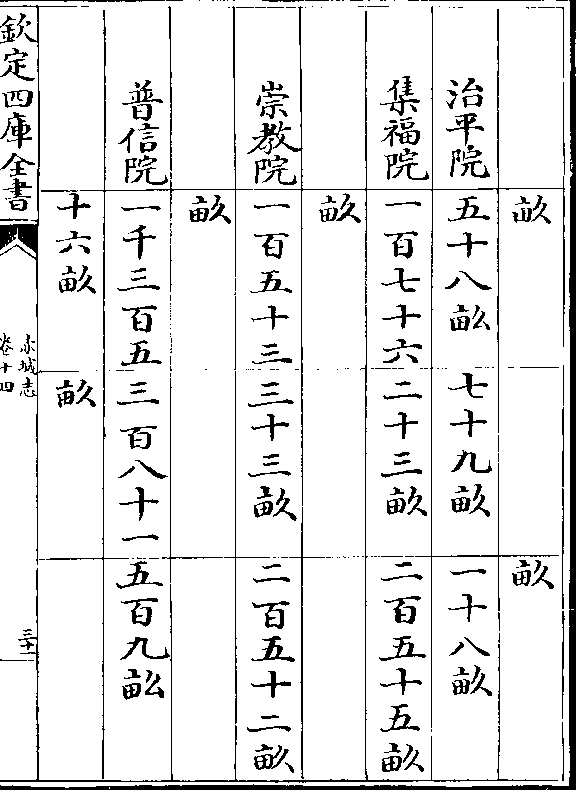 畞 畞
治平院 五十八畞 七十九畞 一十八畞
集福院 一百七十六 二十三畞 二百五十五畞
畞
崇教院 一百五十三 三十三畞 二百五十二畞
畞
普信院 一千三百五 三百八十一 五百九畞
十六畞 畞
欽定四庫全書
赤城志
卷十四